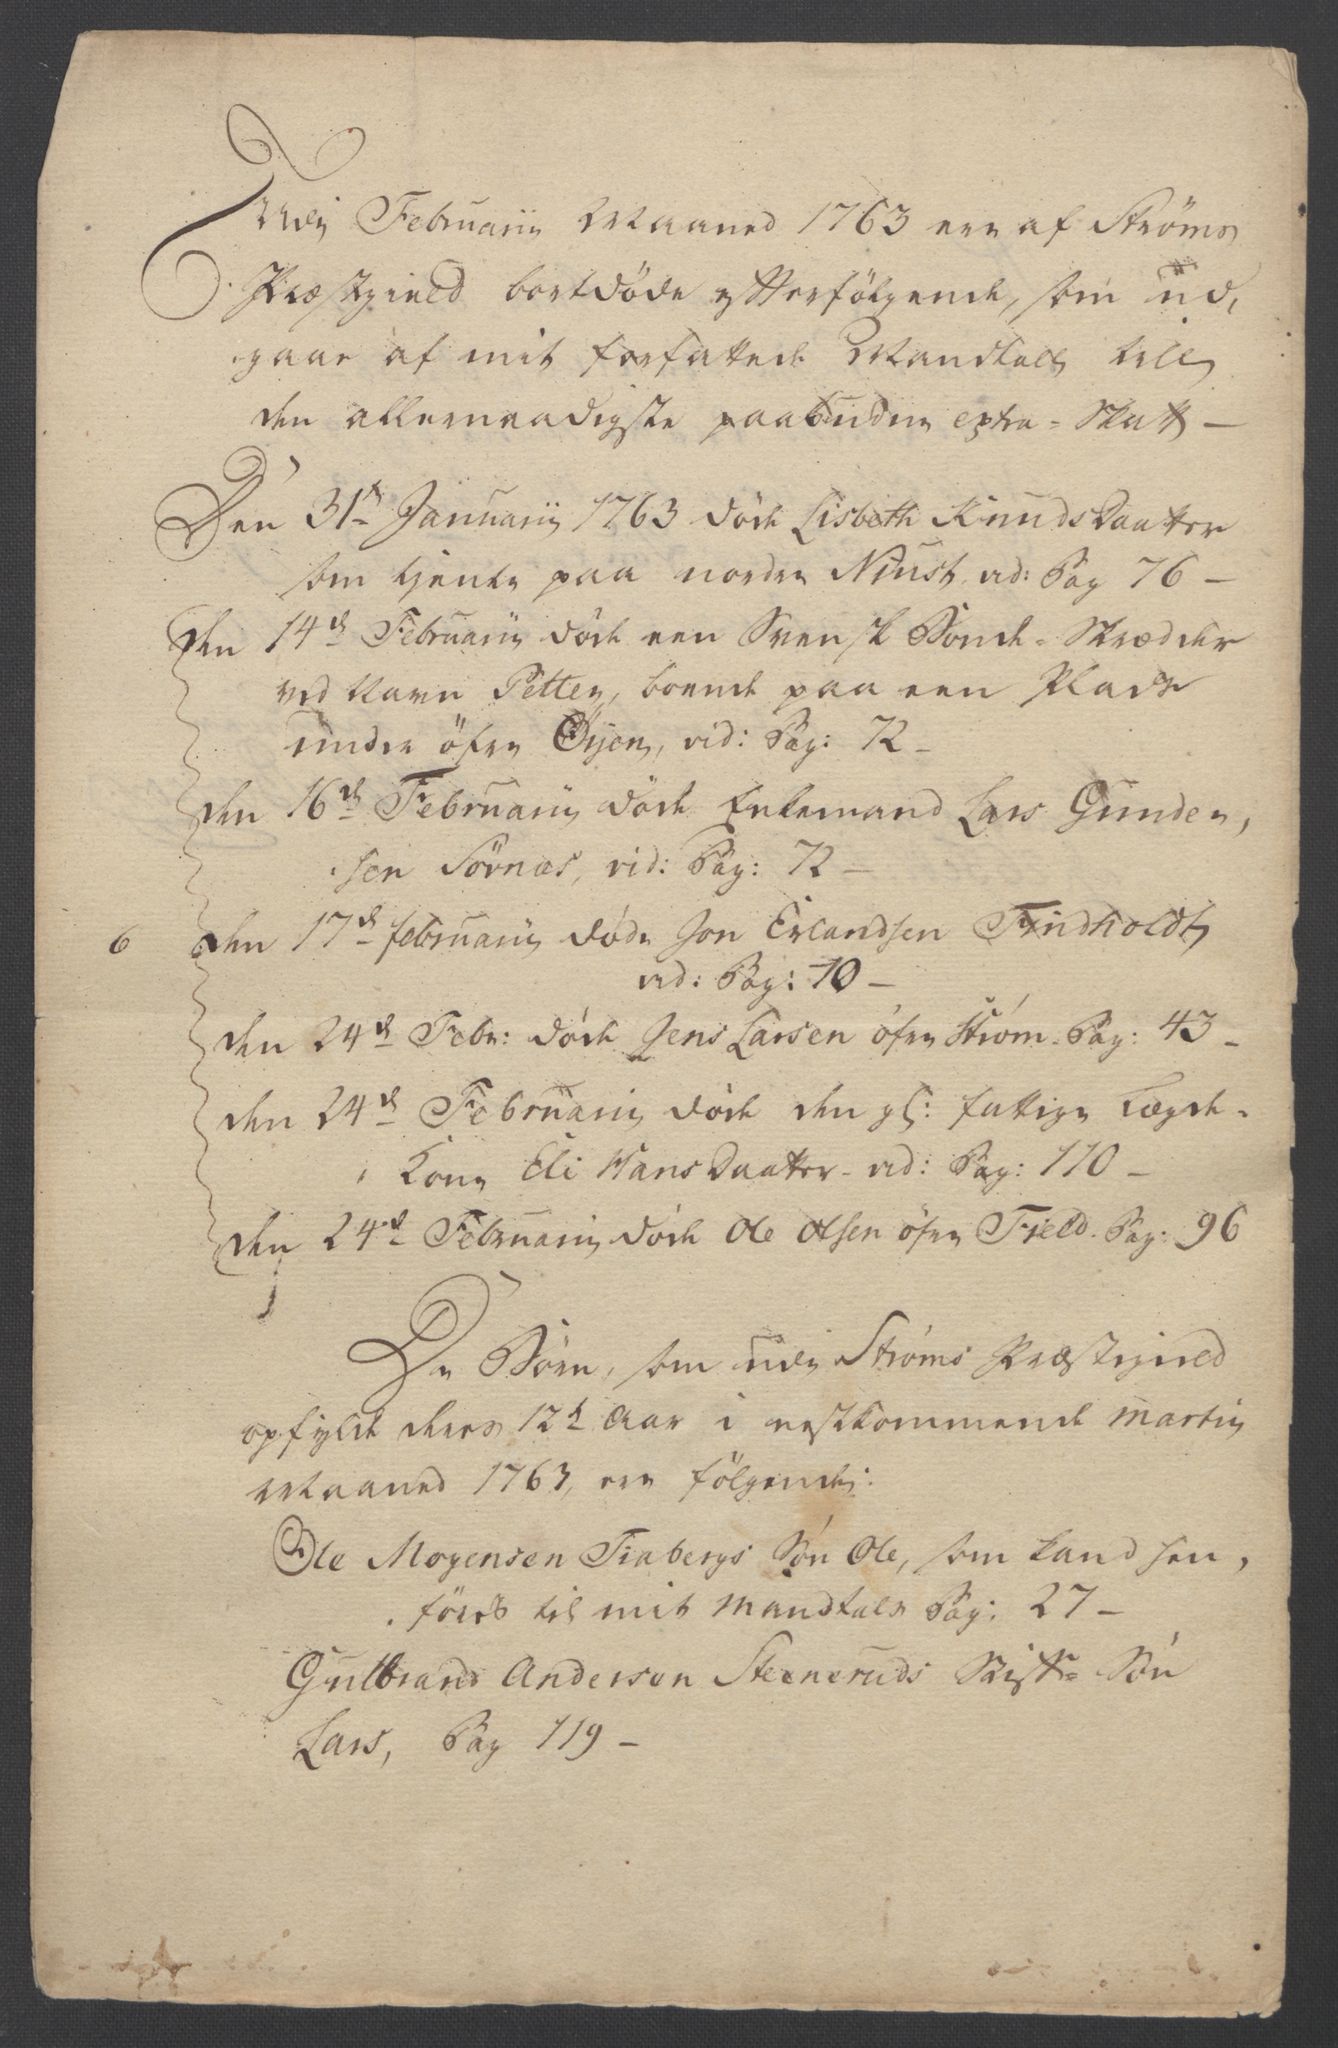 Udi Februarii Maaned 1763 ere af Strøms
Præstegield bortdöde efterfölgende, som ud-
gaar af mit forfattede Mandtall till
den allernaadigste paabudne extra-Skatt —
Den 31te Januarii 1763 döde Lisbeth KnudsDaatter
som tjente paa nordre Niust, vid: Pag 76 —
den 14de Februarii döde een Svensk Bonde-Skrædder
ved Navn Petter, boende paa een Plads
under öfre Öijen, vid: Pag: 72 —
den 16de Februarii döde Enkemand Lars Gunder-
sen Sörnæs, vid: Pag: 72 —
6 den 17de februarii döde Jon Erlandsen Findholdt
vid: Pag: 70 —
den 24de Febr: döde Jens Larsen öfre Ström. Pag: 43 —
den 24de Februarii döde den gl: fattige Lægde-
Kone Eli HansDaatter - vid: Pag: 110 —
den 24de Februarii döde Ole Olsen öfre Field. Pag: 96
De Börn, som udi Ströms Præstegield
opfylde deres 12te Aar i nestkommende Martii
Maaned 1763, ere fölgende:
Ole Mogensen Fiabergs Sön Ole, som kand hen-
föres til mit Mandtals Pag: 27 —
Gulbrand Andersen Steneruds Stif-Sön
Lars, Pag 119 —